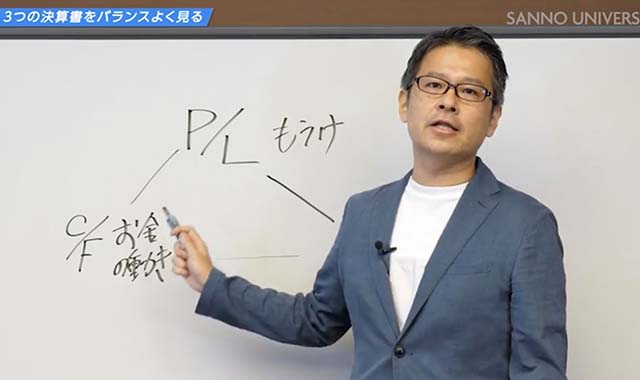 3つの決算書をバランスよく見る
SANNO UNIVERS
P/L もうけ
C/F お金
の動き